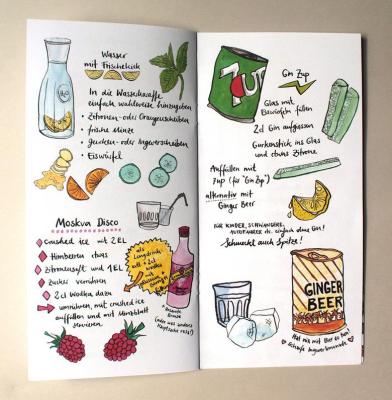 Wasser
mit Frischekick
In die Wasserkaraffe
einfach wahlweise hinzugeben
• Zitronen- oder Orangenscheiben
• frische Minze
• Gurken- oder Ingwerscheiben
• Eiswürfel
Moskva Disco
crushed ice mit 2 EL
Himbeeren etwas
Zitronensaft und 1 EL
Zucker verrühren
2 cl Wodka dazu
umrühren, mit crushed ice
auffüllen und mit Minzblatt
servieren
als
Longdrink:
mit
Brause
(oder was anderes
7up
Gin Zup
Glas mit
Eiswürfeln füllen
2 cl Gin aufgiessen
Gurkenstick ins Glas
und etwas Zitrone
Auffüllen mit
7up (für "Gin Zup")
alternativ mit
Ginger Beer
FÜR KINDER, SCHWANGERE,
AUTOFAHRER etc. einfach ohne Gin!
Schmeckt auch Spitze!
GINGER
BEER
Hat nix mit Bier zu tun